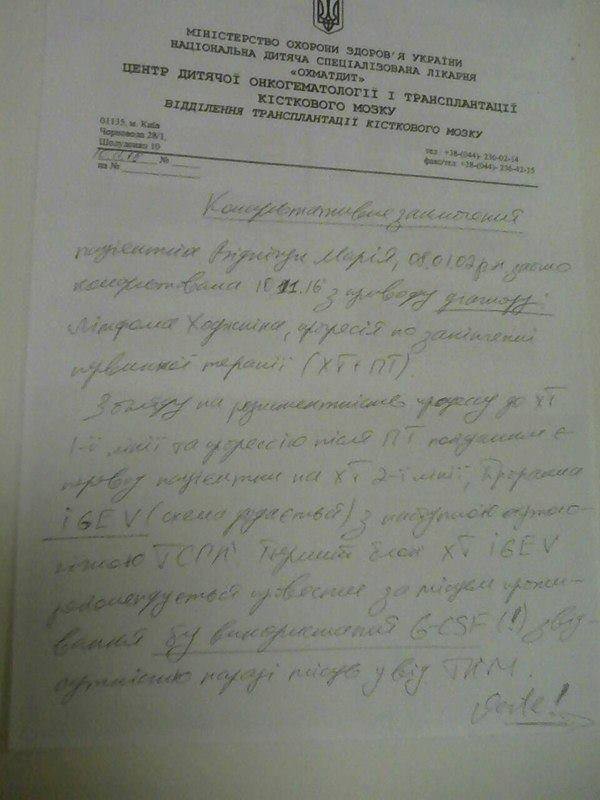 МІНІСТЕРСТВО ОХОРОНИ ЗДОРОВ'Я УКРАЇНИ
НАЦІОНАЛЬНА ДИТЯЧА СПЕЦІАЛІЗОВАНА ЛІКАРНЯ
«ОХМАТДИТ»
ЦЕНТР ДИТЯЧОЇ ОНКОГЕМАТОЛОГІЇ І ТРАНСПЛАНТАЦІЇ
КІСТКОВОГО МОЗКУ
ВІДДІЛЕННЯ ТРАНСПЛАНТАЦІЇ КІСТКОВОГО МОЗКУ
01135, м. Київ
Чорновола 28/1,
тел: +38-(044)- 236-02-14
факс/тел. +38-(044)- 236-42-15
№
на № 
Консультативне заключення
пацієнтка Марія, 08.01.02 р.н. заочно
консультована 10.11.16 з приводу діагнозу:
Лімфома Ходжкіна, прогресія по закінченні
первинної терапії (ХТ+ПТ).
З огляду на резистентність процесу до ХТ
1-ї лінії та прогресію після ПТ показаним є
перевод пацієнтки на ХТ 2-ї лінії, програма
iGEV (схема додається) з наступною
ТСПК. Перший блок ХТ iGEV
рекомендується провести за місцем прожи-
вання без використання G-CSF (!) з від-
сутністю наразі місць у від ТКМ.
Verte!